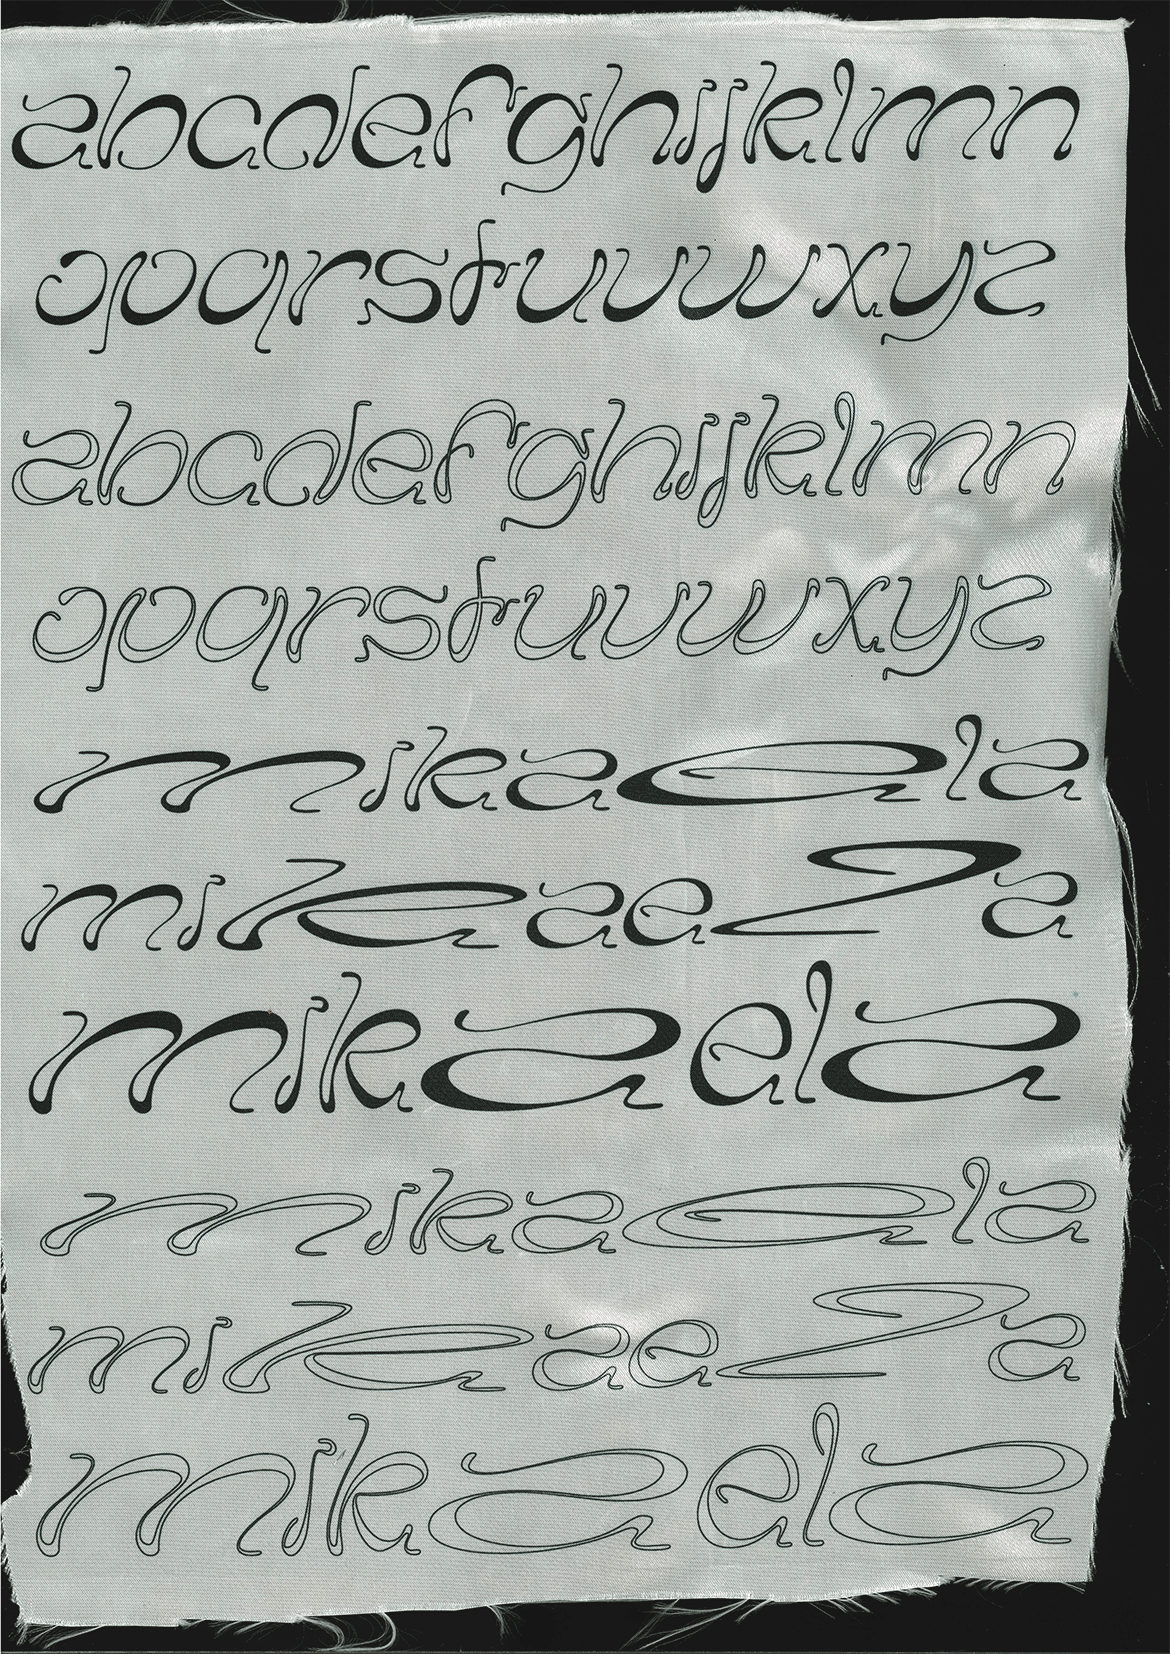 abcdefghijklmn
opqrstuvwxyz
abcdefghijklmn
opqrstuvwxyz
mikaela
mikaela
mikaela
mikaela
mikaela
mikaela